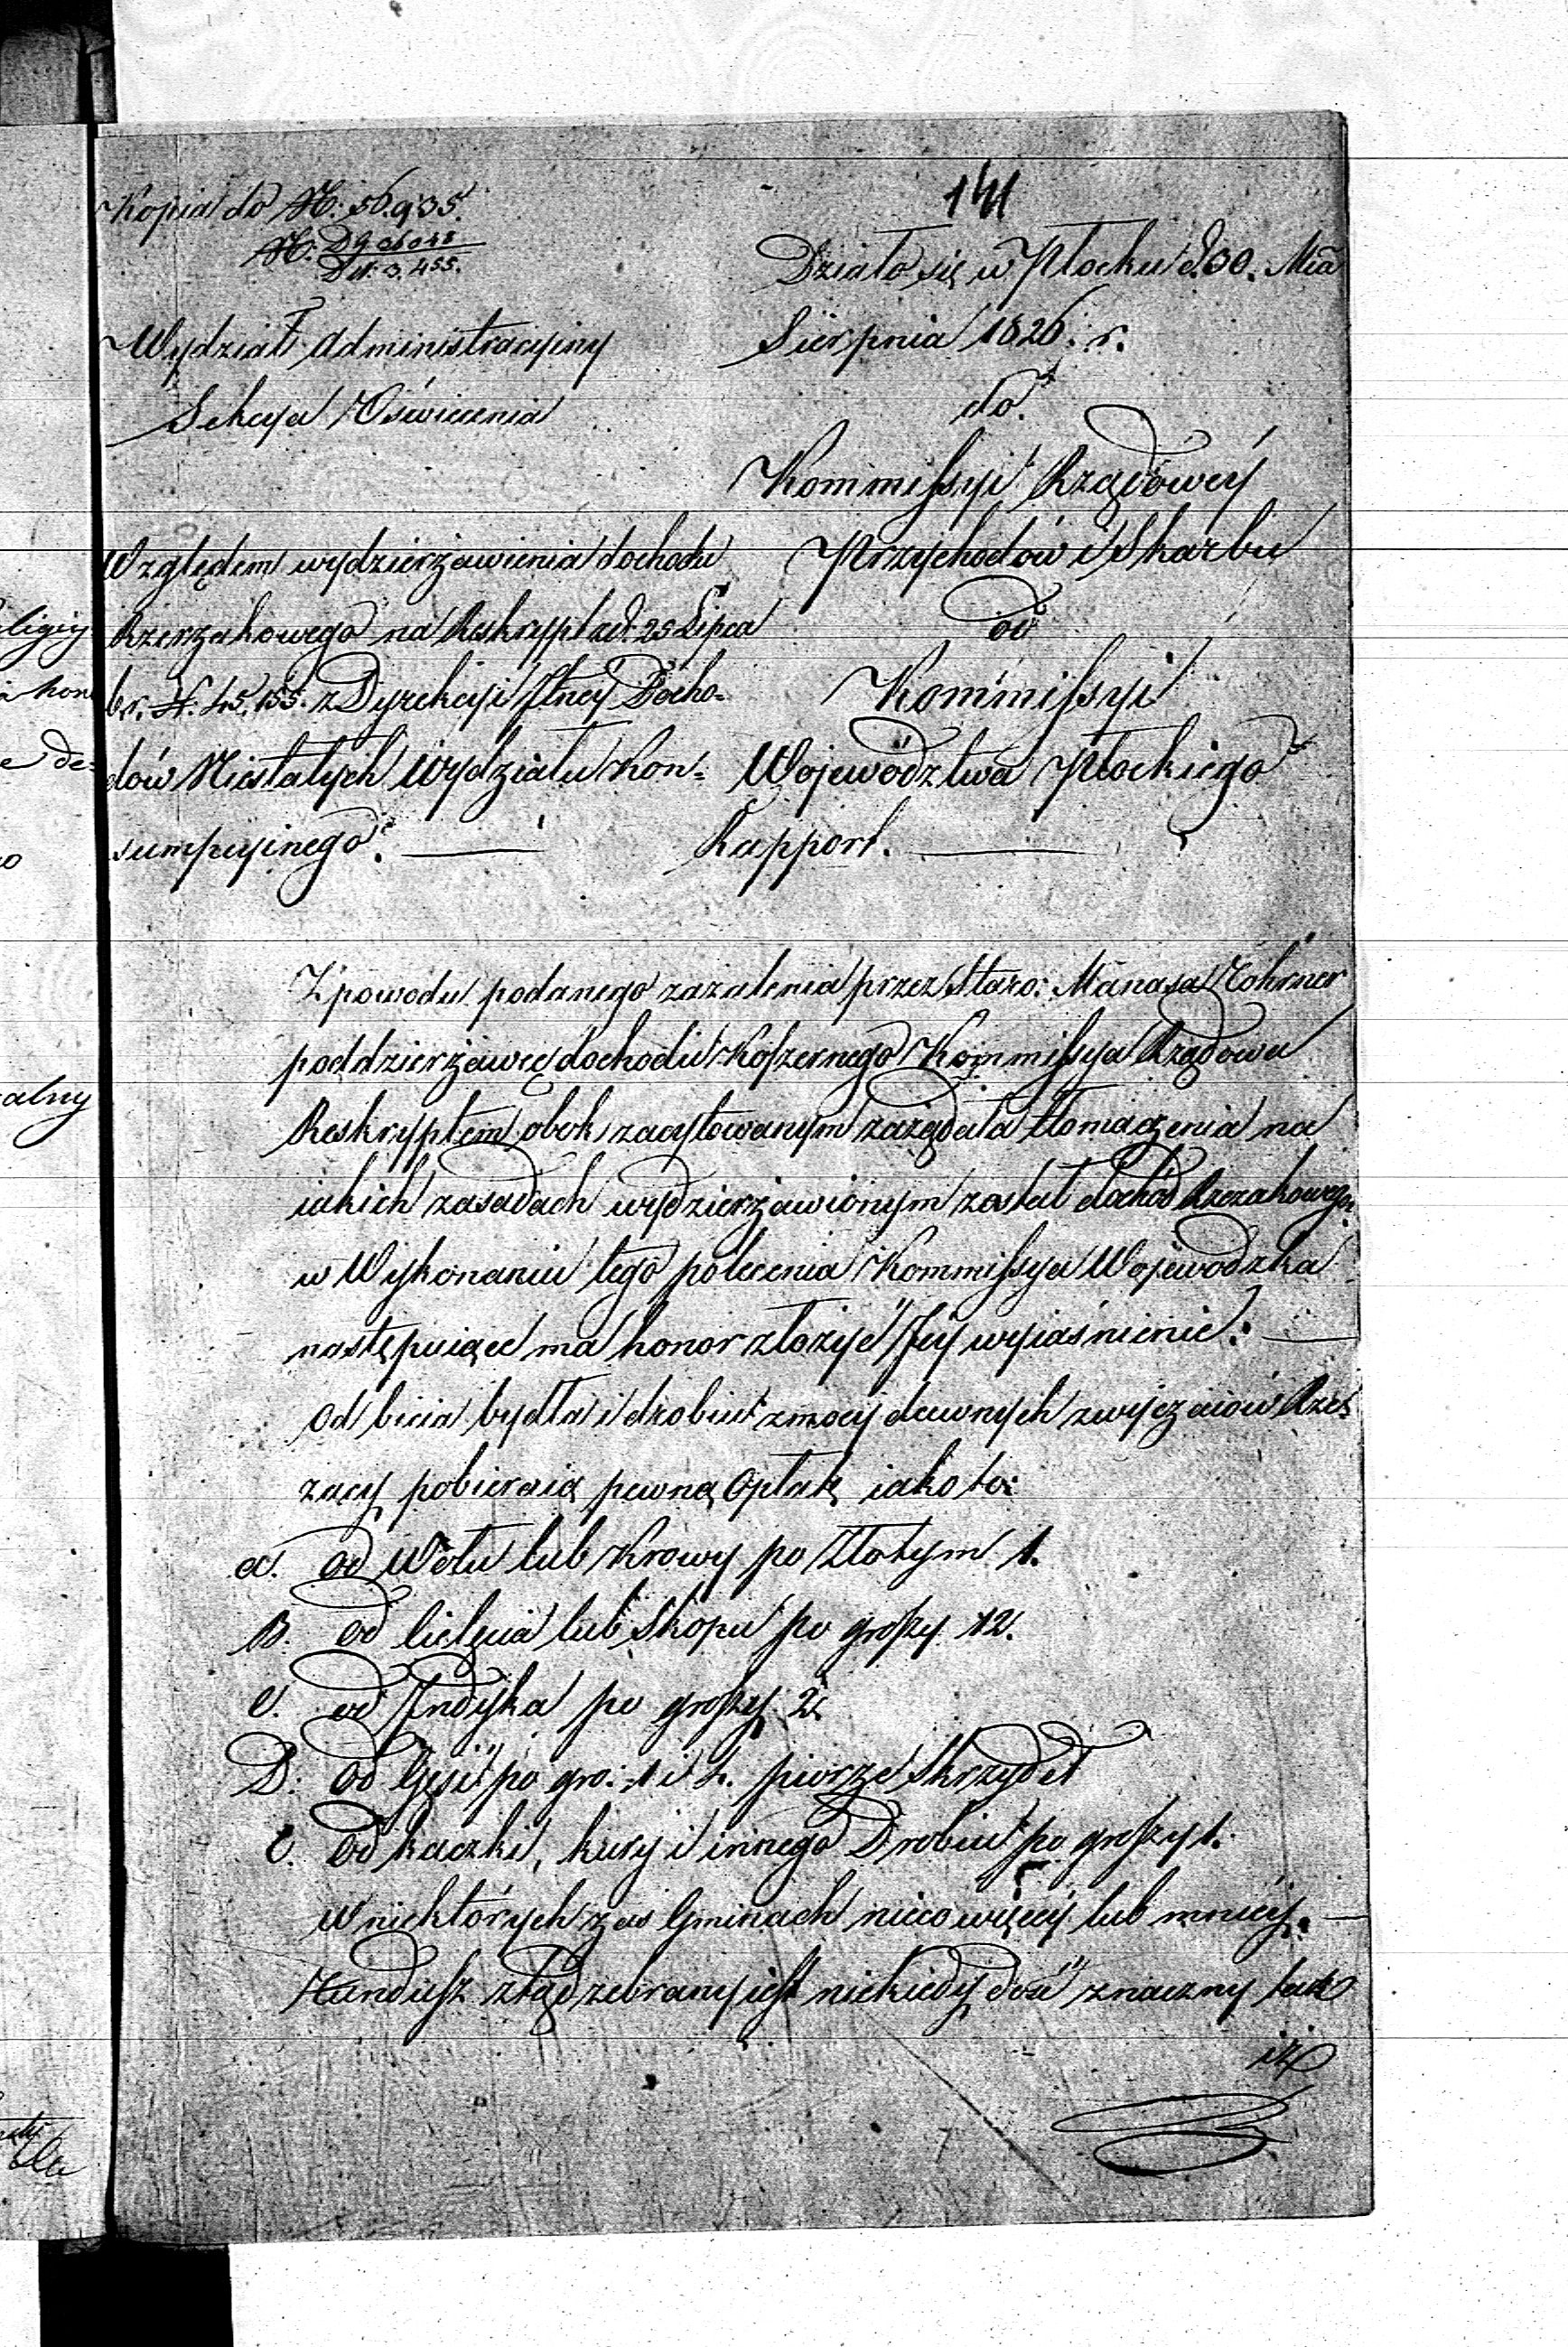 141
Kopia do N: 56.935.
N.
D N: 3.455.
Działo się w Płocku d. 30. Mca
Sierpnia 1826. r.
Wydział Administracyiny
Sekcya Oświecenia
do
Kommissyi Rządowéy
Przychodów i Skarbu
od
Kommissyi
Województwa Płockiego
Rapport.
Względem wydzierżawienia dochodu
Rzezakowego na Reskrypt z d. 25 Lipca
b. r. N. 45,155. z Dyrekcyi Docho-
dów Niestałych Wydziału Kon-
sumpcyinego.
Z powodu podanego zażalenia przez Staro: Manasa
poddzierżawcę dochodu Koszernego Kommissya Rządowa
Reskryptem obok zacytowanym zażądała tłomaczenia na
iakich zasadach wydzierżawionym został dochód Rzezakowego,
w Wykonaniu tego polecenia Kommissya Wojewódzka
następuiące ma honor złożyć Jéy wyiaśnienie:
Od bicia bydła i drobiu z mocy dawnych zwyczaiów Rze-
zacy pobieraią pewną Opłatę iako to:
a. od Wołu lub Krowy po Złotym 1.
B. od Cielęcia lub Skopu po groszy 12.
C. od Indyka po groszy 2.
D. od Gęsi po gro: 1 i 2. piorze Skrzydeł
E. od kaczki, kury i innego Drobiu po groszy 1.
W niektórych zaś Gminach nieco więcéy lub mniéy.
Fundusz ztąd zebrany iest niekiedy dość znaczny tak
iż